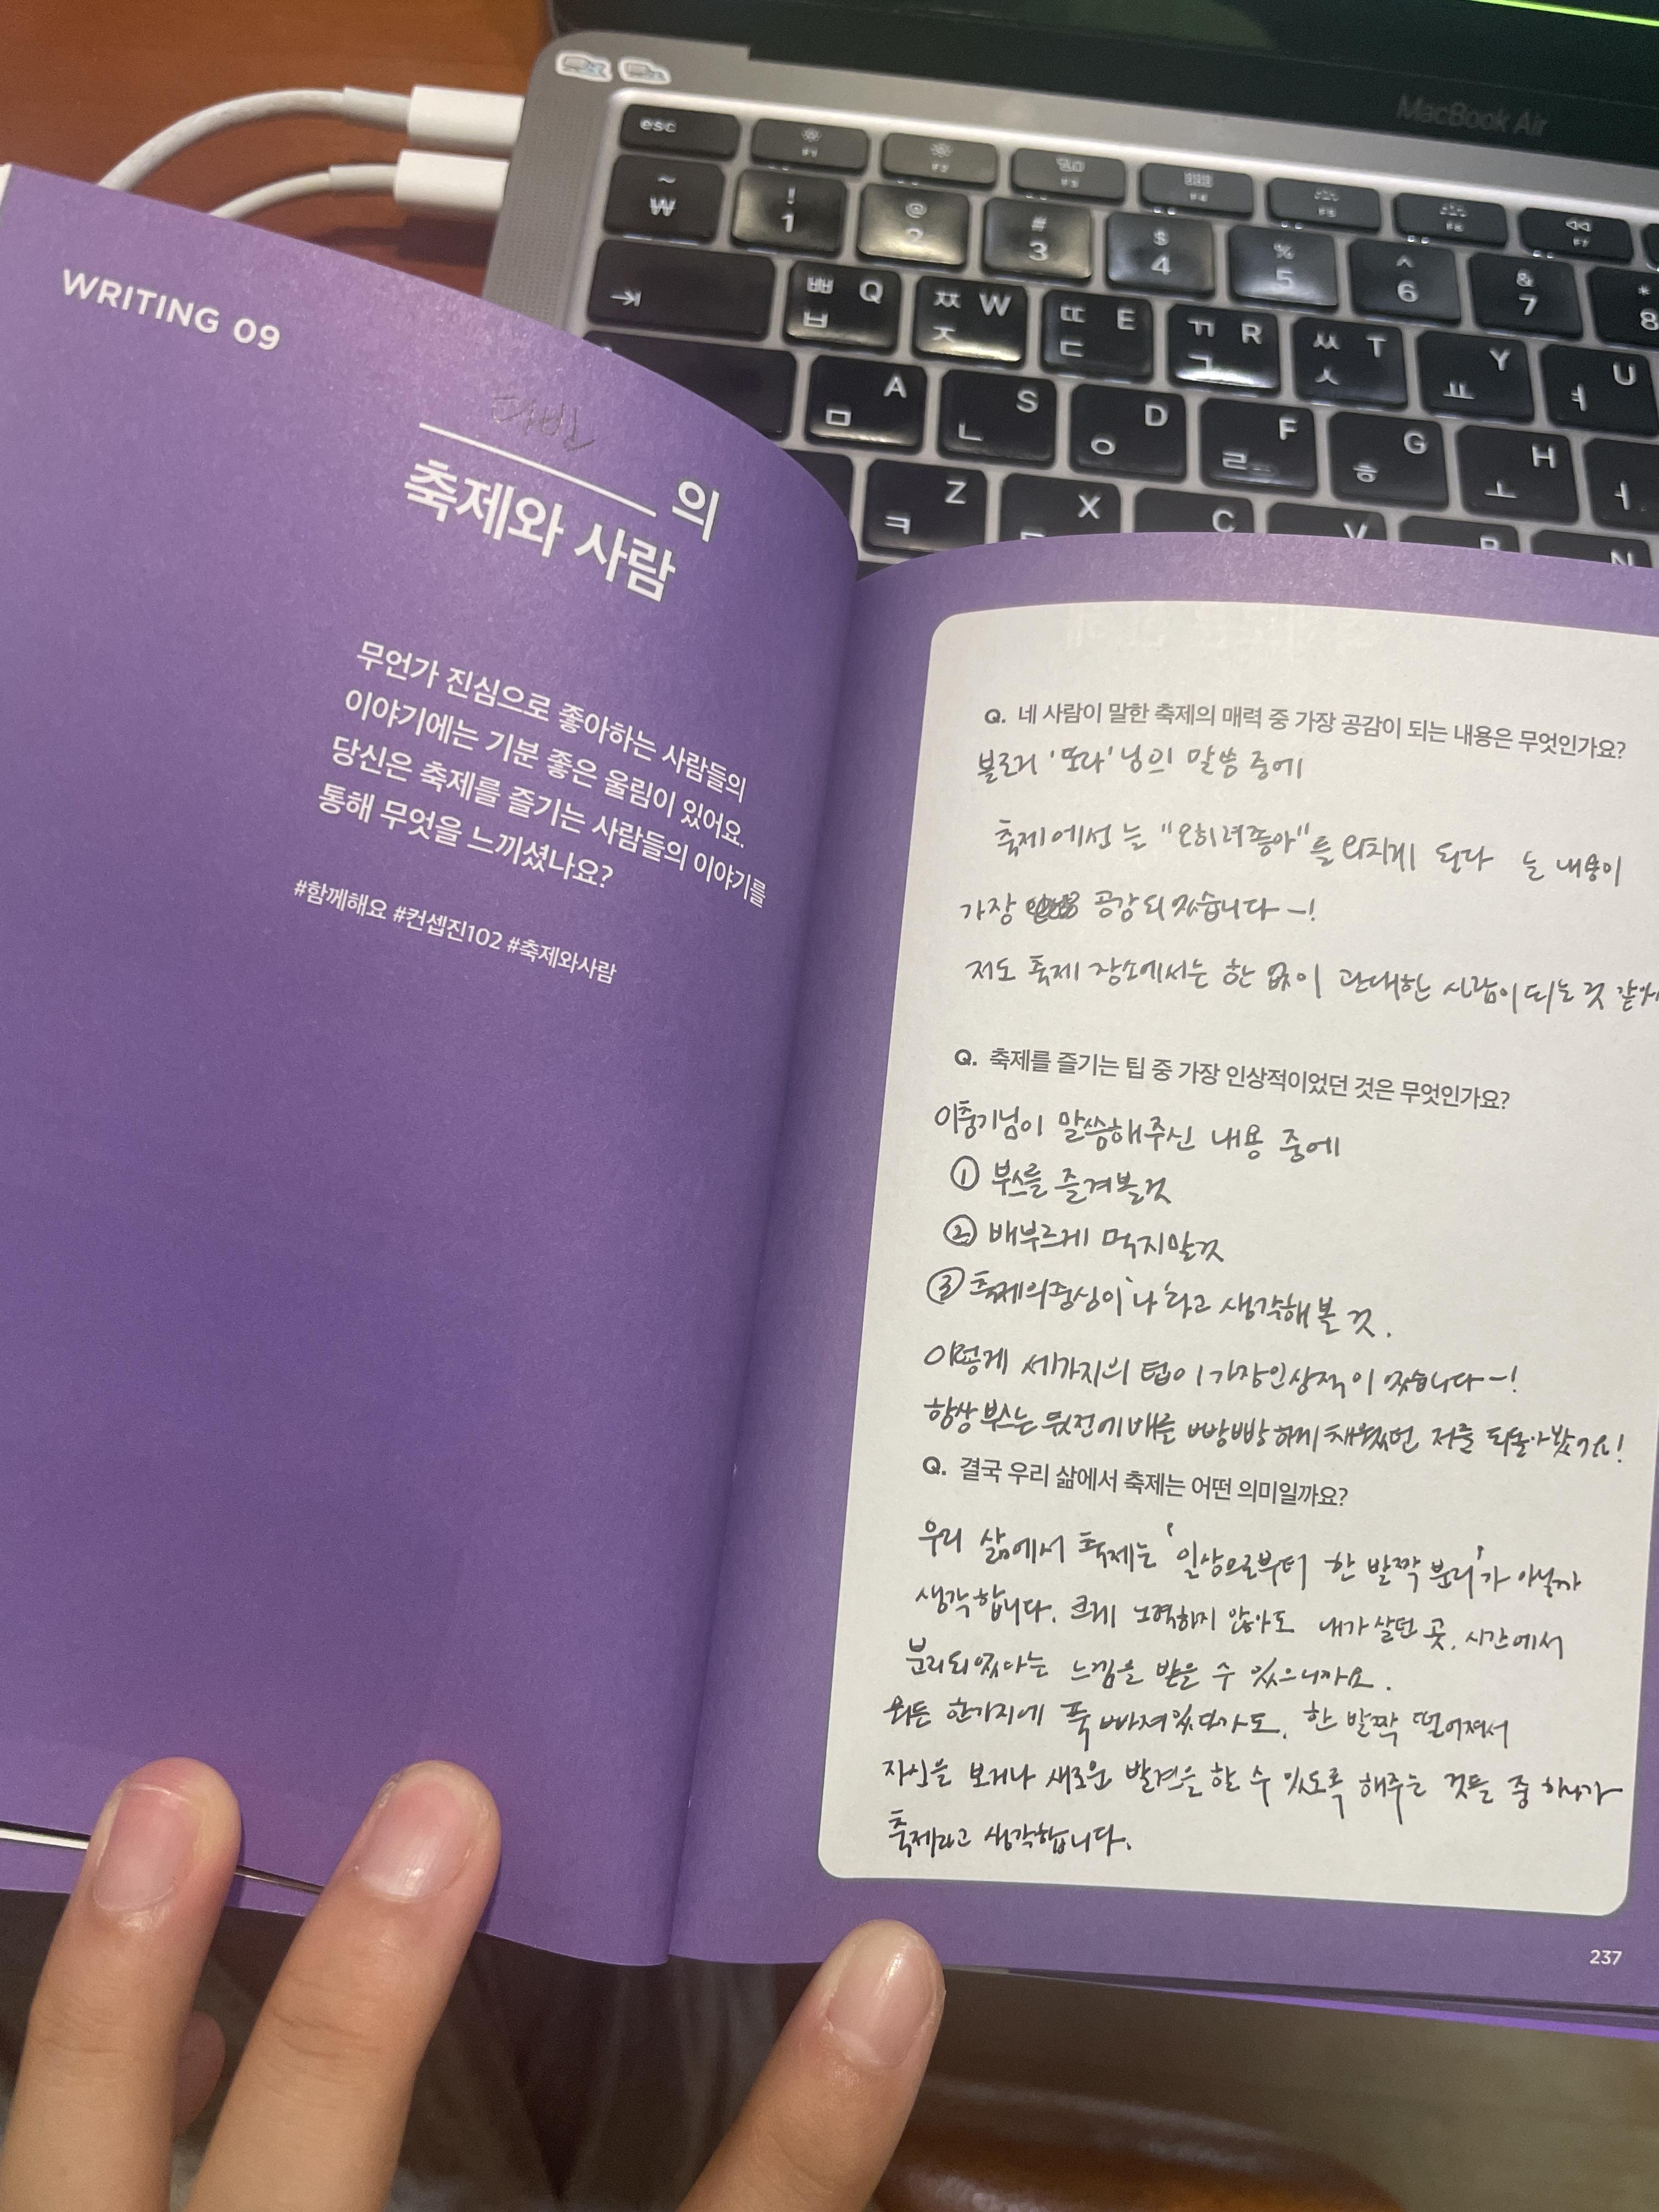 MacBook Air
esc
F1
F2
F3
F4
F5
F6
F7
~ ₩
! 1
@ 2
# 3
$ 4
% 5
^ 6
& 7
* 8
ㅃ ㅂ Q
ㅉ ㅈ W
ㄸ ㄷ E
ㄲ ㄱ R
ㅆ ㅅ T
ㅛ Y
ㅕ U
ㅁ A
ㄴ S
ㅇ D
ㄹ F
ㅎ G
ㅗ H
ㅓ
ㅋ Z
X
C
V
B
N
WRITING 09
의
축제와 사람
무언가 진심으로 좋아하는 사람들의
이야기에는 기분 좋은 울림이 있어요.
당신은 축제를 즐기는 사람들의 이야기를
통해 무엇을 느끼셨나요?
#함께해요 #컨셉진102 #축제와사람
Q. 네 사람이 말한 축제의 매력 중 가장 공감이 되는 내용은 무엇인가요?
블로거 '또라'님의 말씀 중에
축제에선는 "오히려좋아"를 외치게 된다 는 내용이
가장 공감되었습니다~!
저도 축제 장소에서는 한 없이 관대한 사람이 되는 것 같아
Q. 축제를 즐기는 팁 중 가장 인상적이었던 것은 무엇인가요?
이충기님이 말씀해주신 내용 중에
① 부스를 즐겨볼것
② 배부르게 먹지말것
③ 축제의중심이 '나'라고 생각해볼 것.
이렇게 세가지의 팁이 가장인상적이 었습니다~!
항상 부스는 뒷전에 배를 빵빵하게 채웠던 저를 되돌아봤거든!
Q. 결국 우리 삶에서 축제는 어떤 의미일까요?
우리 삶에서 축제는 '일상으로부터 한 발짝 분리'가 아닐까
생각합니다. 크게 노력하지 않아도 내가 살던 곳, 시간에서
분리되었다는 느낌을 받을 수 있으니까요.
뭐든 한가지에 푹 빠져있다가도, 한 발짝 떨어져서
자신을 보거나 새로운 발견을 할 수 있도록 해주는 것들 중 하나가
축제라고 생각합니다.
237